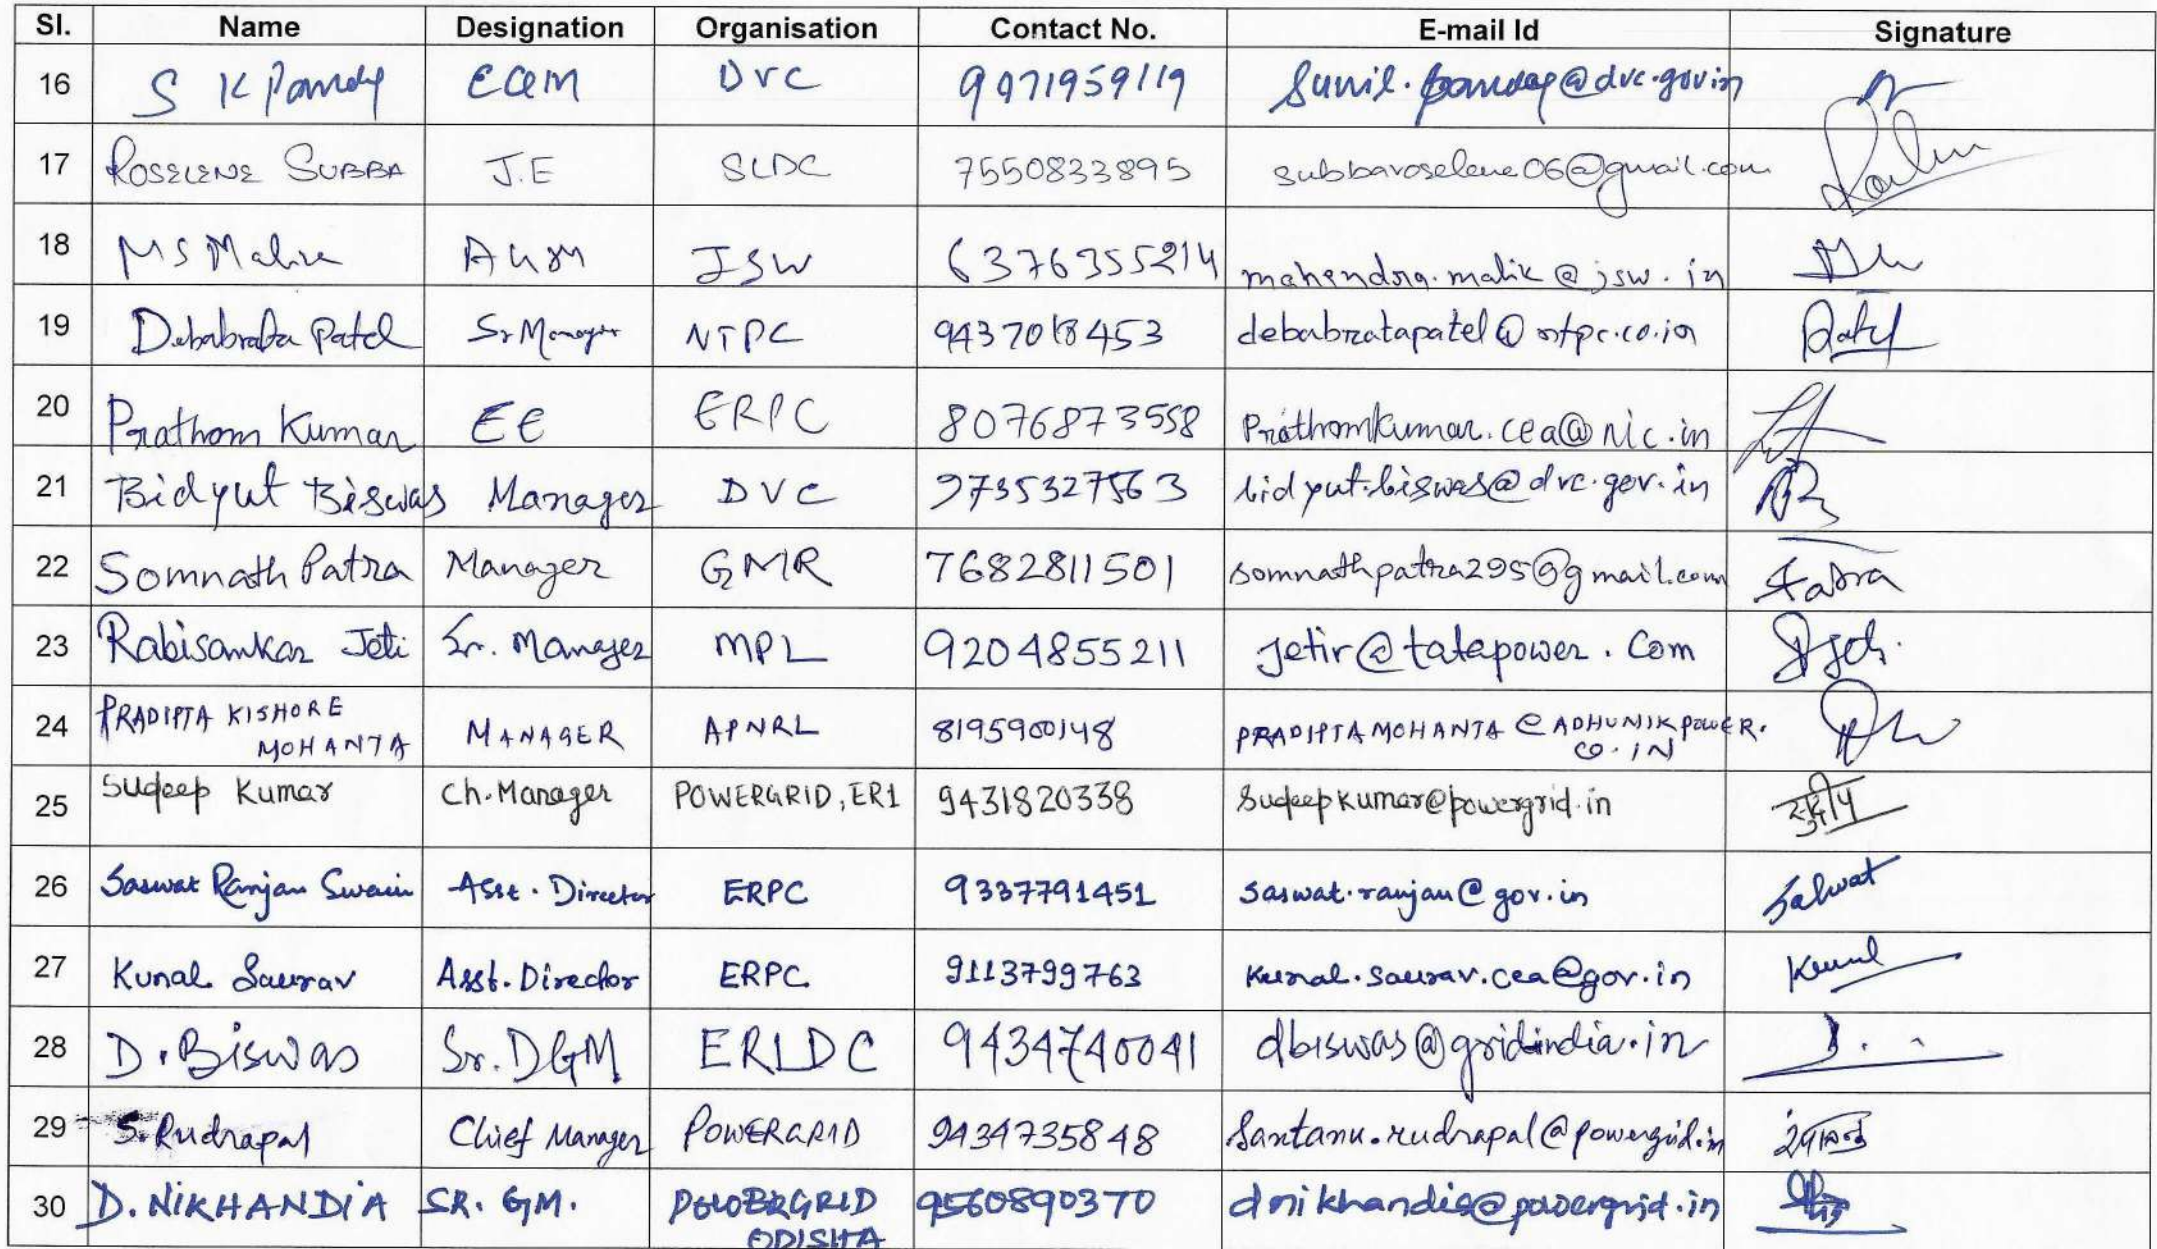 Sl. Name Designation Organisation Contact No. E-mail Id Signature
16 S K Pandey DVC 9971959119 Sunil.pandey@dvc.gov.in
17 ROSELENE SUBBA J.E SLDC 7550833895 subbaroselene06@gmail.com
18 MS Malik AGM JSW 6376355214 mahendra.malik@jsw.in
19 Debabrata Patel Sr Manager NTPC 9437018453 debabratapatel@ntpc.co.in
20 Pratham Kumar EE ERPC 8076873558 Prathamkumar.cea@nic.in
21 Bidyut Biswas Manager DVC 9735327563 bidyut.biswas@dvc.gov.in
22 Somnath Patra Manager GMR 7682811501 somnathpatra295@gmail.com Patra
23 Rabisankar Jeti Sr. Manager MPL 9204855211 jetir@tatapower.Com
24 PRADIPTA KISHORE
MOHANTA MANAGER APNRL 8195900148 PRADIPTAMOHANTA@ADHUNIKPOWER.
CO.IN
25 Sudeep Kumar Ch.Manager POWERGRID,ER1 9431820338 Sudeepkumar@powergrid.in सुदीप
26 Saswat Ranjan Swain Asst. Director ERPC 9337791451 saswat.ranjan@gov.in Saswat
27 Kunal Saurav Asst. Director ERPC 9113799763 Kunal.saurav.cea@gov.in Kunal
28 D. Biswas Sr. DGM ERLDC 9434740041 dbiswas@gridindia.in
29 S. Rudrapal Chief Manager POWERGRID 9434735848 Santanu.rudrapal@powergrid.in
30 D. NIKHANDIA SR. GM. POWERGRID
ODISHA 9560890370 dnikhandia@powergrid.in